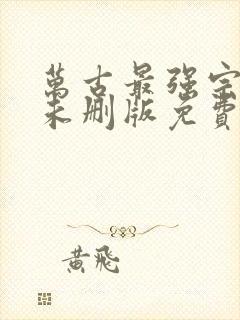 萬古最强宗
未删版免費
黃飛